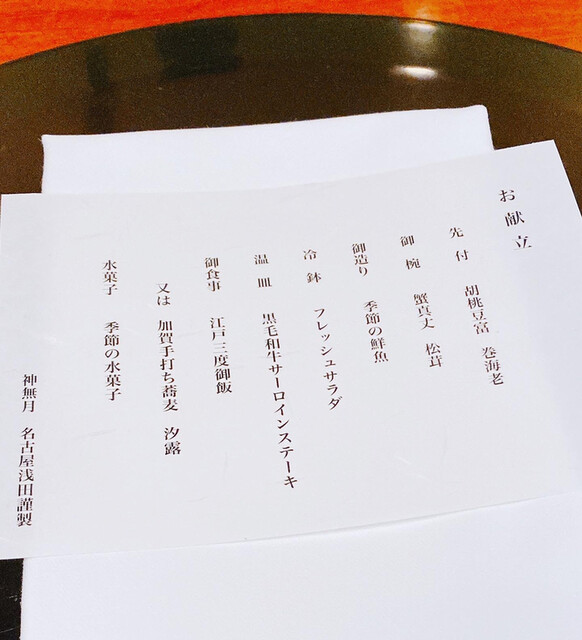 お献立
先付　胡桃豆富　巻海老
御椀　蟹真丈　松茸
御造り　季節の鮮魚
冷鉢　フレッシュサラダ
温皿　黒毛和牛サーロインステーキ
御食事　江戸三度御飯
又は　加賀手打ち蕎麦　汐露
水菓子　季節の水菓子
神無月　名古屋浅田謹製